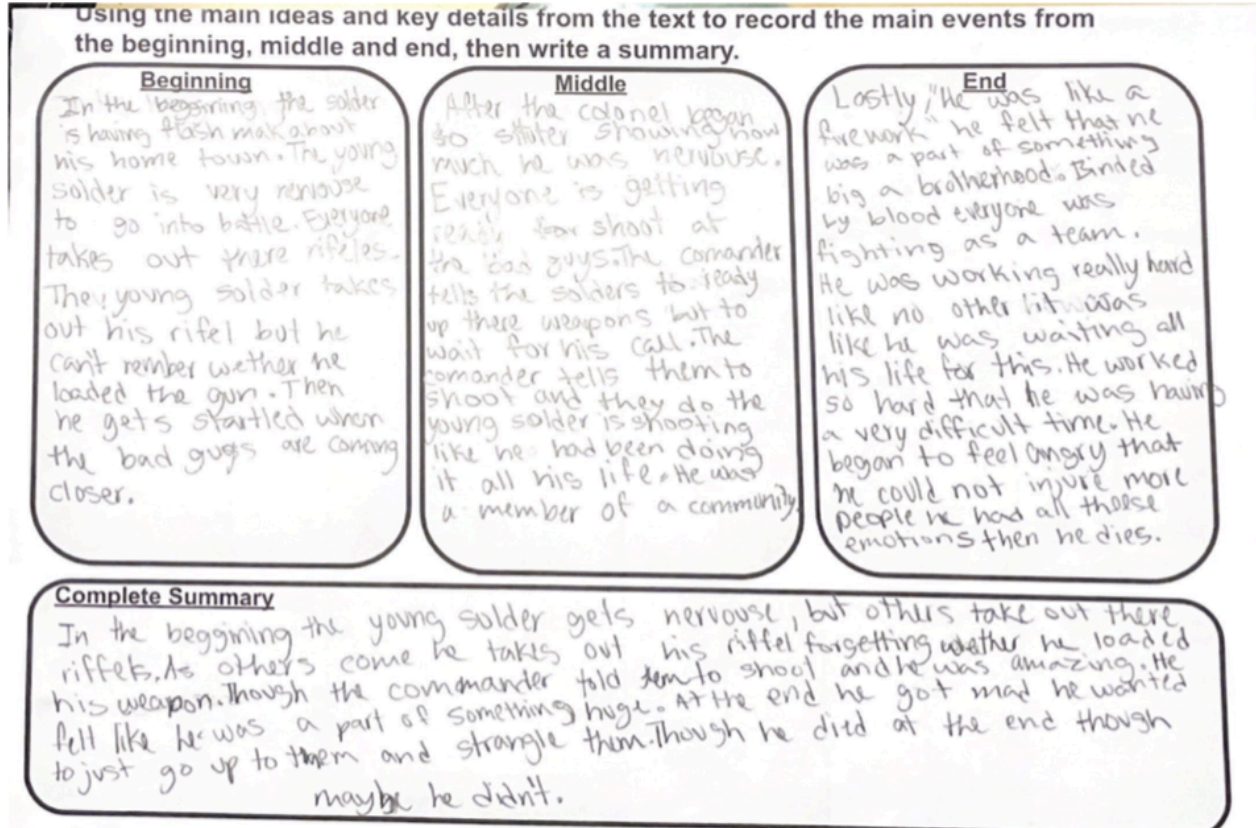 Using the main ideas and key details from the text to record the main events from
the beginning, middle and end, then write a summary.
Beginning
In the beggining the solder
is having flash mak about
his home town. The young
solder is very nervouse
to go into battle. Everyone
takes out there rifeles.
The young solder takes
out his rifel but he
can't rember wether he
loaded the gun. Then
he gets startled when
the bad guys are coming
closer.
Middle
After the colonel began
to stuter showing how
much he was nervouse.
Everyone is getting
ready for shoot at
the bad guys. The comander
tells the solders to ready
up there weapons but to
wait for his call. The
comander tells them to
shoot and they do the
young solder is shooting
like he had been doing
it all his life. He was
a member of a community.
End
Lastly, "He was like a
firework" he felt that he
was a part of something
big a brotherhood. Binded
by blood everyone was
fighting as a team.
He was working really hard
like no other it was
like he was waiting all
his life for this. He worked
so hard that he was having
a very difficult time. He
began to feel angry that
he could not injure more
people he had all theese
emotions then he dies.
Complete Summary
In the beggining the young solder gets nervouse, but others take out there
riffels. As others come he takes out his riffel forgetting wether he loaded
his weapon. Though the commander told tem to shoot and he was amazing. He
felt like he was a part of something huge. At the end he got mad he wanted
to just go up to them and strangle them. Though he died at the end though
maybe he didn't.